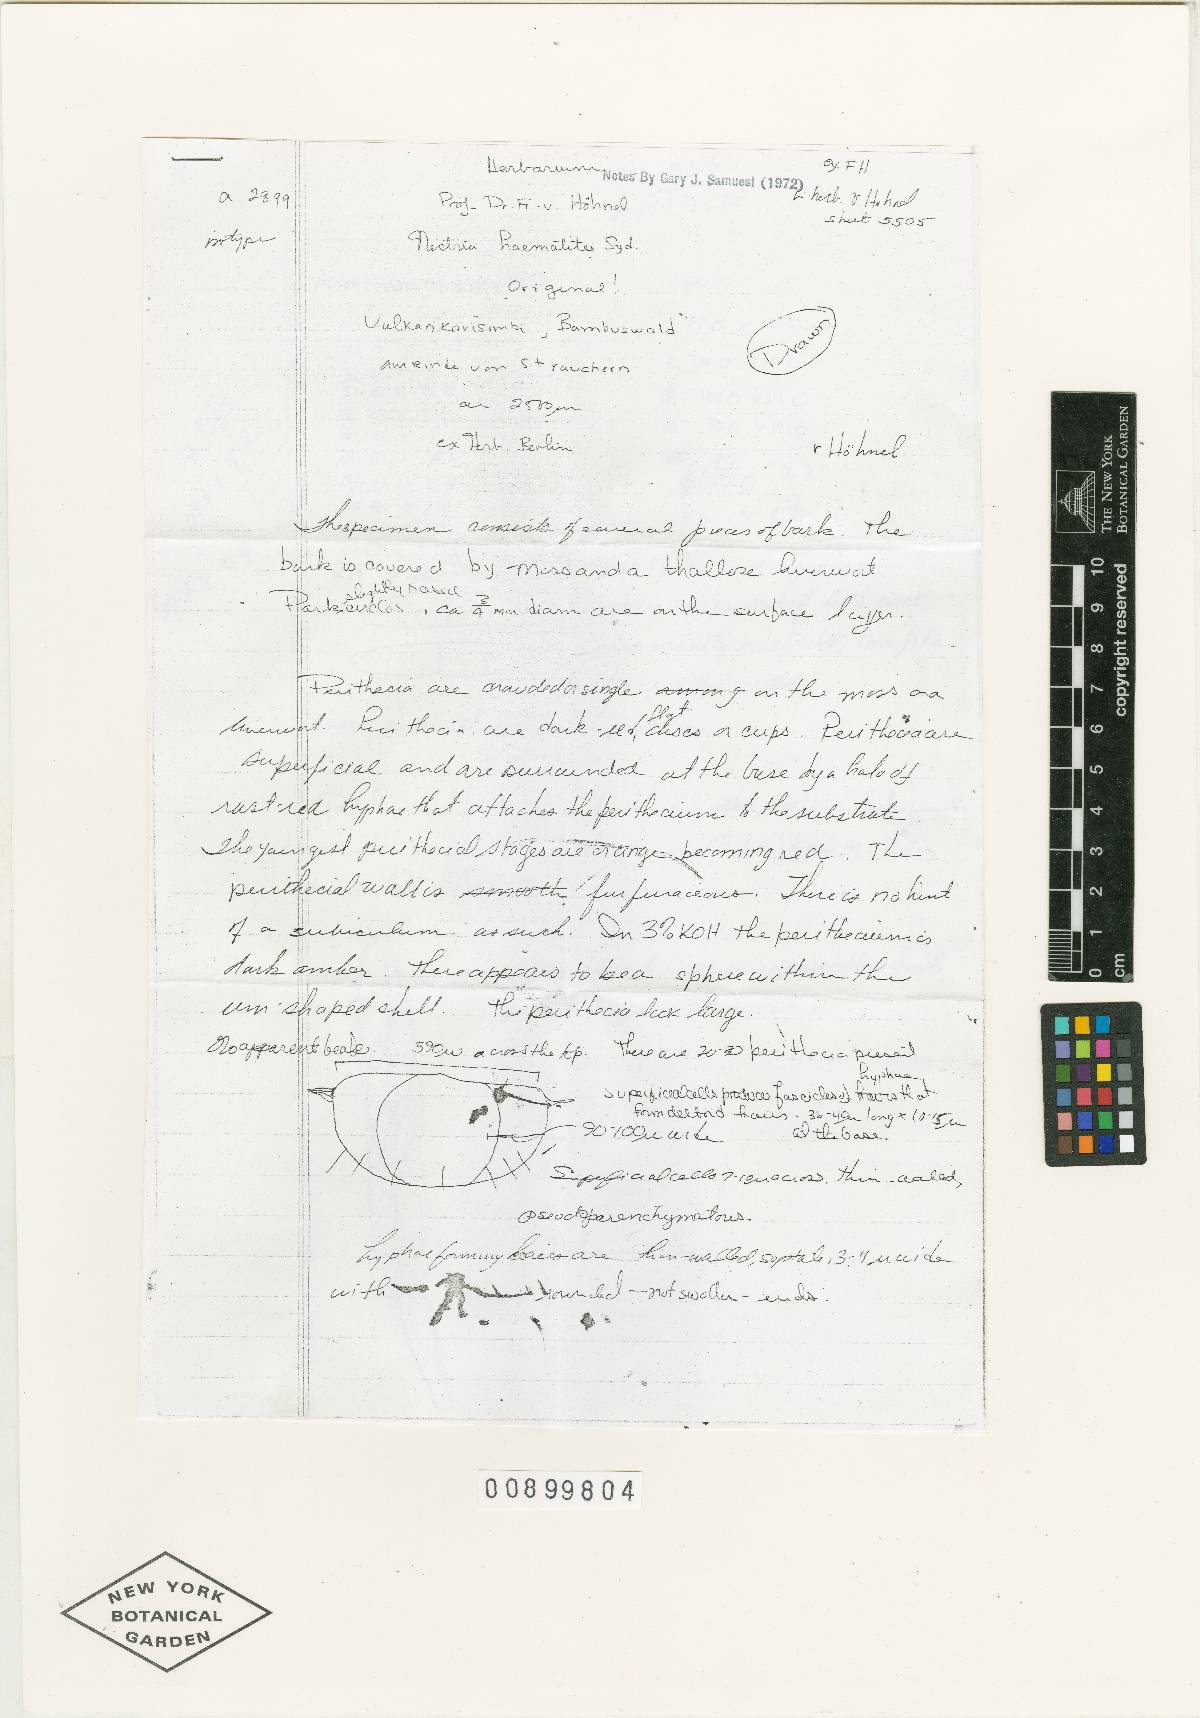 Herbarium
Notes By Gary J. Samuesl (1972)
ex FH
a 2899
Prof. Dr. Fr. v. Höhnel
herb. v Höhnel
sheet 5505
isotype
Nectria haematites Syd.
Original!
Vulkan Karisimbi, "Bambuswald"
am Rinde von Strauchern
Drawn
2500 m
ex Herb. Berlin
v Höhnel
The specimen consists of several pieces of bark. The
bark is covered by moss and a thallose liverwort
slightly raised
Dark circles, ca 3/4 mm diam are on the surface layer.
Perithecia are crowded or single among on the moss or a
liverwort. Perithecia are dark-red, flat discs or cups. Perithecia are
superficial and are surrounded at the base by a halo of
rust-red hyphae that attaches the perithecium to the substrate.
The youngest perithecial stages are orange becoming red. The
perithecial wall is smooth furfuraceous. There is no hint
of a subiculum as such. In 3% KOH the perithecium is
dark amber. There appears to be a sphere within the
urn-shaped shell. The perithecia look large.
No apparent beak. 590µ across the top. There are 20-30 perithecia present
hyphae
Superficial cells produce fascicles of hairs that
form deltoid hairs. long x 10-15µ
90-100µ wide at the base.
Superficial cells across, thin-walled,
pseudoparenchymatous.
hyphae forming hairs are thin-walled, septate, 3-4µ wide
with rounded - not swollen - ends.
THE NEW YORK
BOTANICAL GARDEN
0 1 2 3 4 5 6 7 8 9 10
cm
copyright reserved
00899804
NEW YORK
BOTANICAL
GARDEN